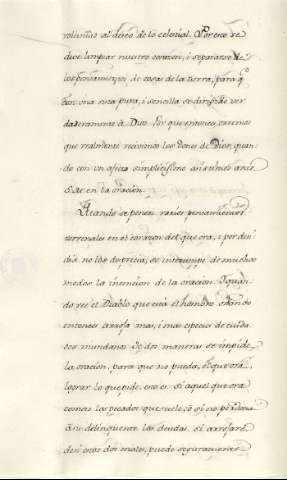 voluntas al deseo de lo celestial. Por eso se
debe limpiar nuestro corazon, i separarse de
los pensamientos de cosas de la tierra, para q.
con una ma pura, i sencilla se dirija de ver
daderamente à Dios. Por que entonces creemos
que realmente recivimos los dones de Dios, quan
do con un afecto simplicissimo asistimos ante
en la oracion.
Quando se ponen varios pensamientos
terrenales en el corazon del que ora, i por
no los desprecia, se interrumpe de muchos
modos la intencion de la oracion. I quan
do vee el Diablo que està el hombre orando
entonces arroja mas, i mas especies de cuida
dos mundanos. De dos maneras se impide
la oracion, para que no pueda, el que ora,
lograr lo que pide, esto es: si aquel que ora
comete los pecados que si no perdona
delinquentes las deudas, si arrojare
de si estos dos males, puede seguramente